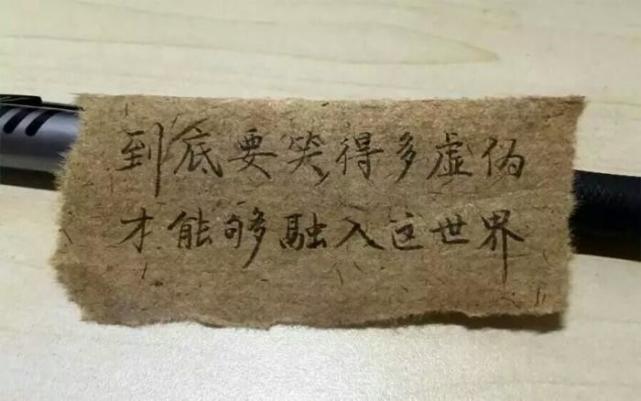 到底要笑得多虚伪
才能够融入这世界